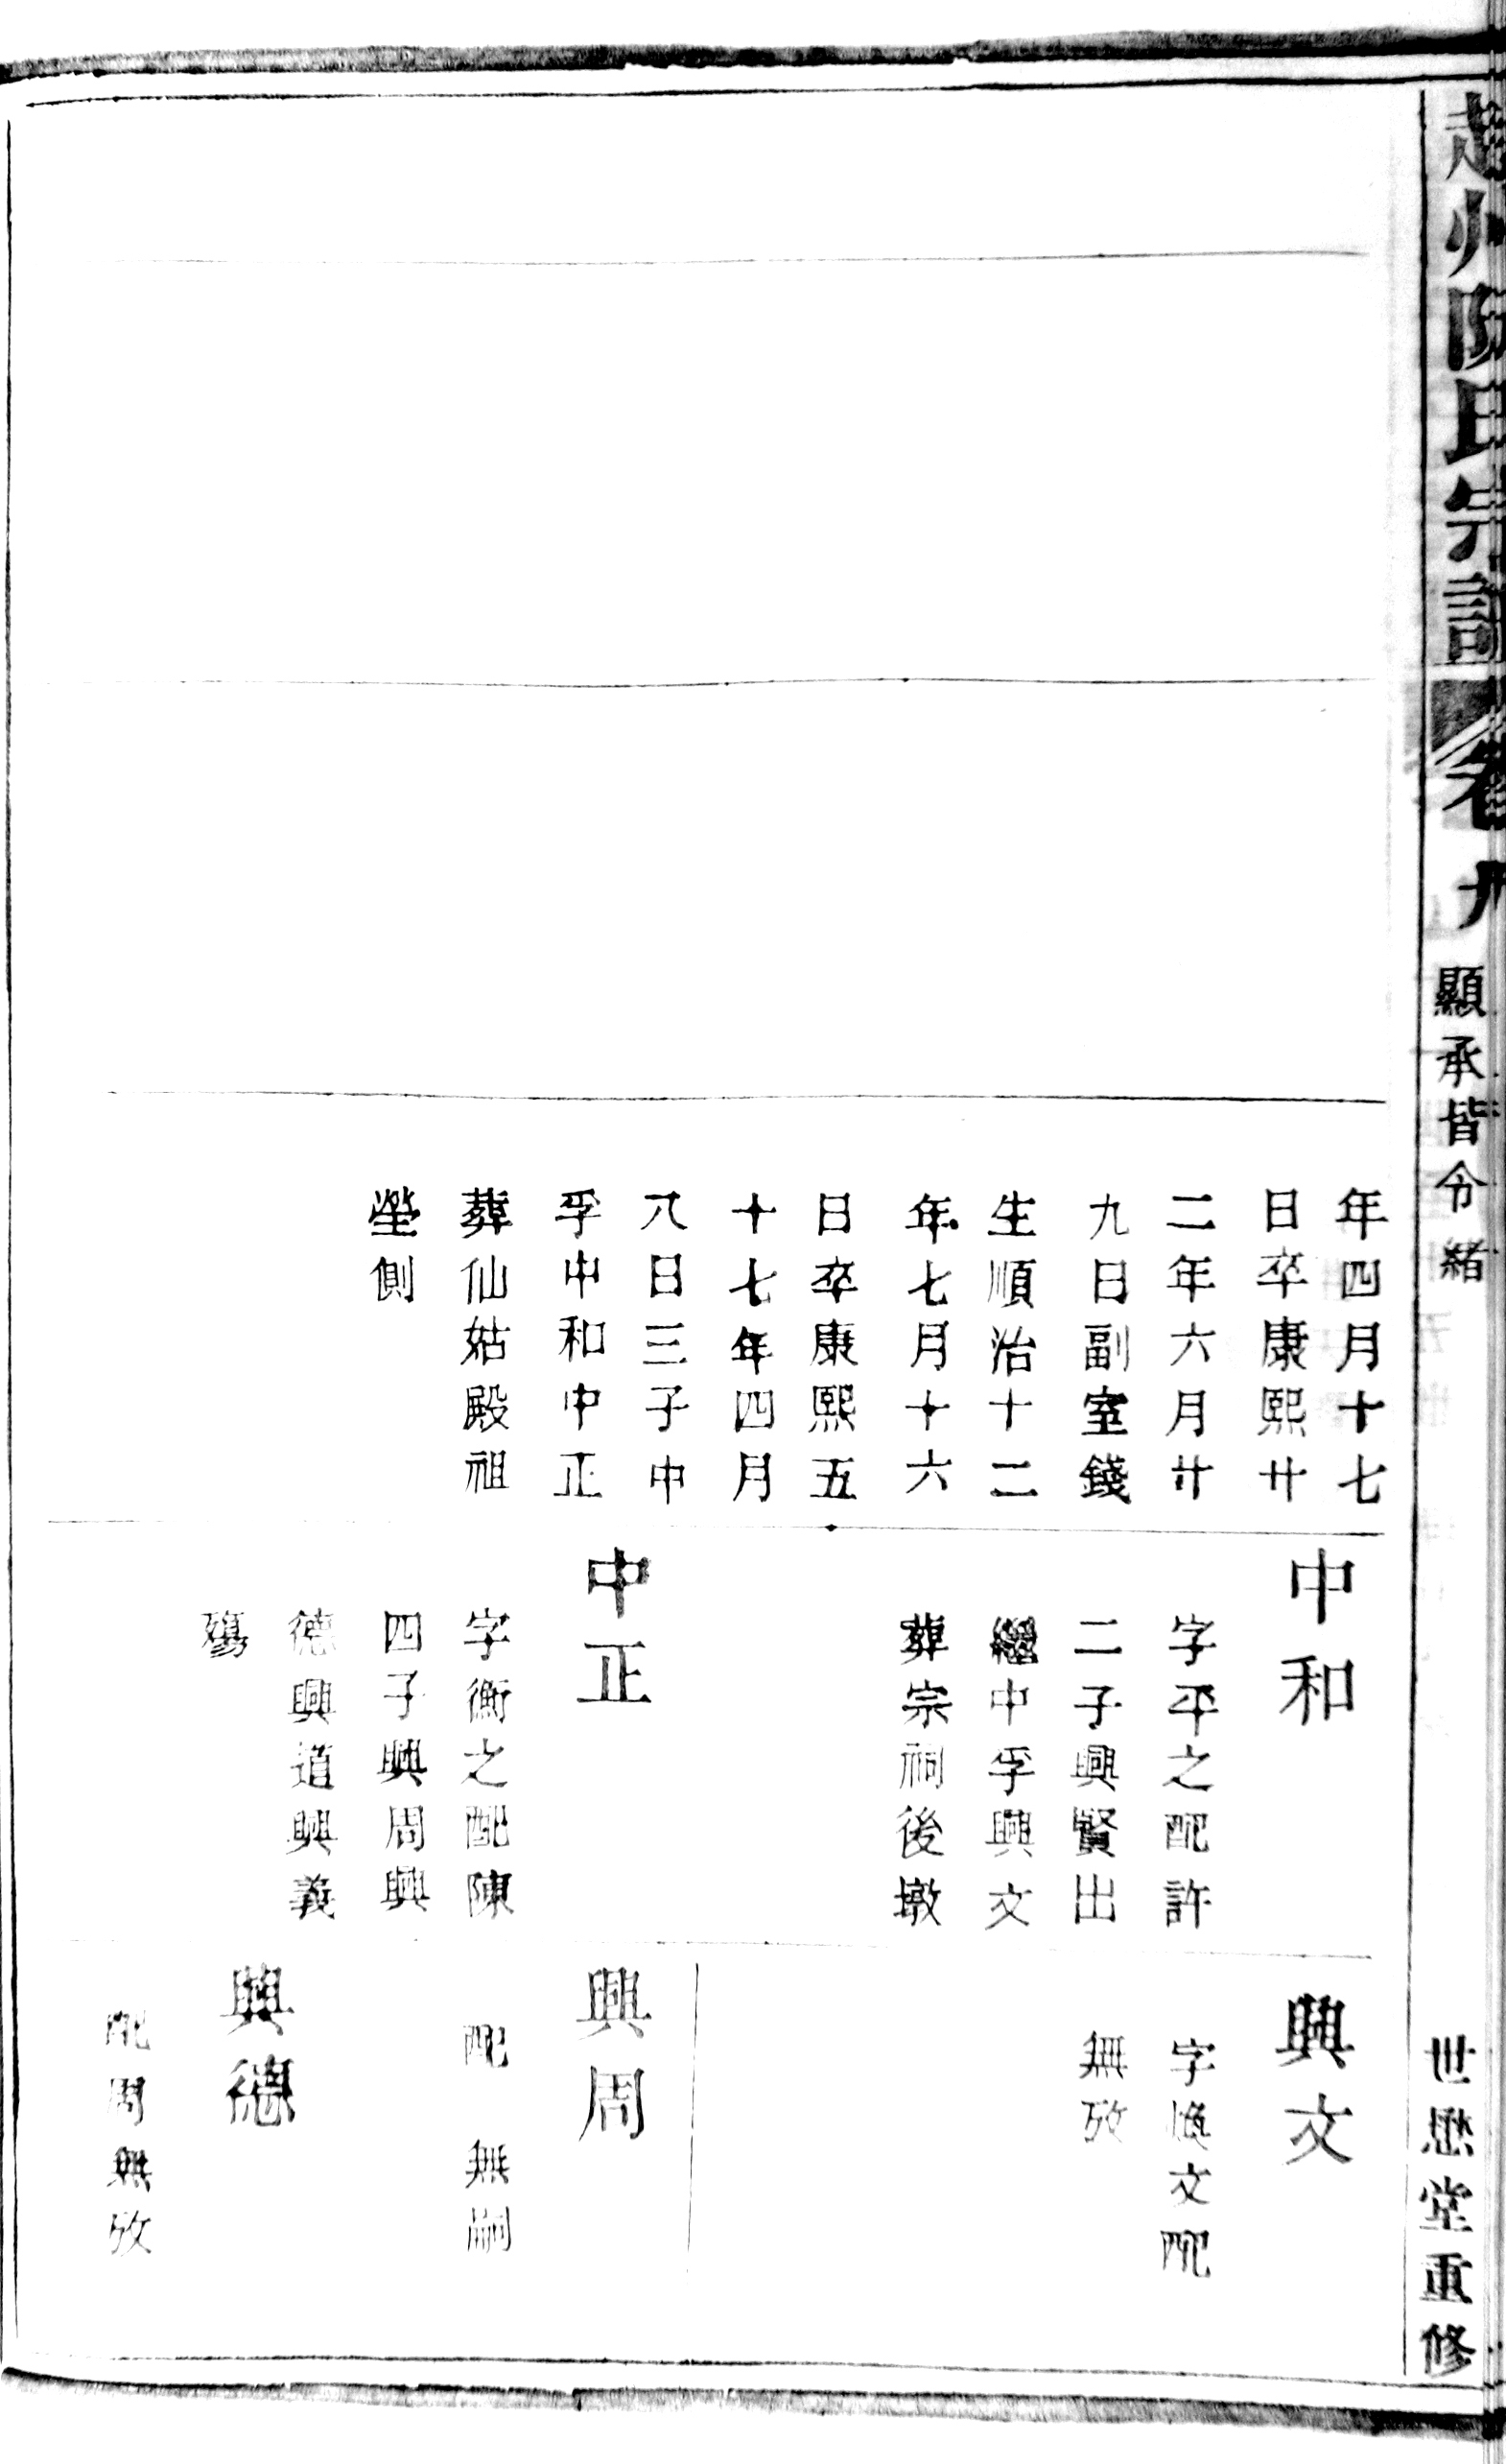 卷
顯承皆令緒
世懋堂重修
年四月十七
日卒康熙廿
二年六月廿
九日副室錢
生順治十二
年七月十六
日卒康熙五
十七年四月
八日三子中
孚中和中正
葬仙姑殿祖
塋側
中和
字平之配許
二子興賢出
繼中孚興文
葬宗祠後墩
中正
字衡之配陳
四子興周興
德興道興義
殤
興文
字煥文配
無攷
興周
配 無嗣
興德
配周無攷